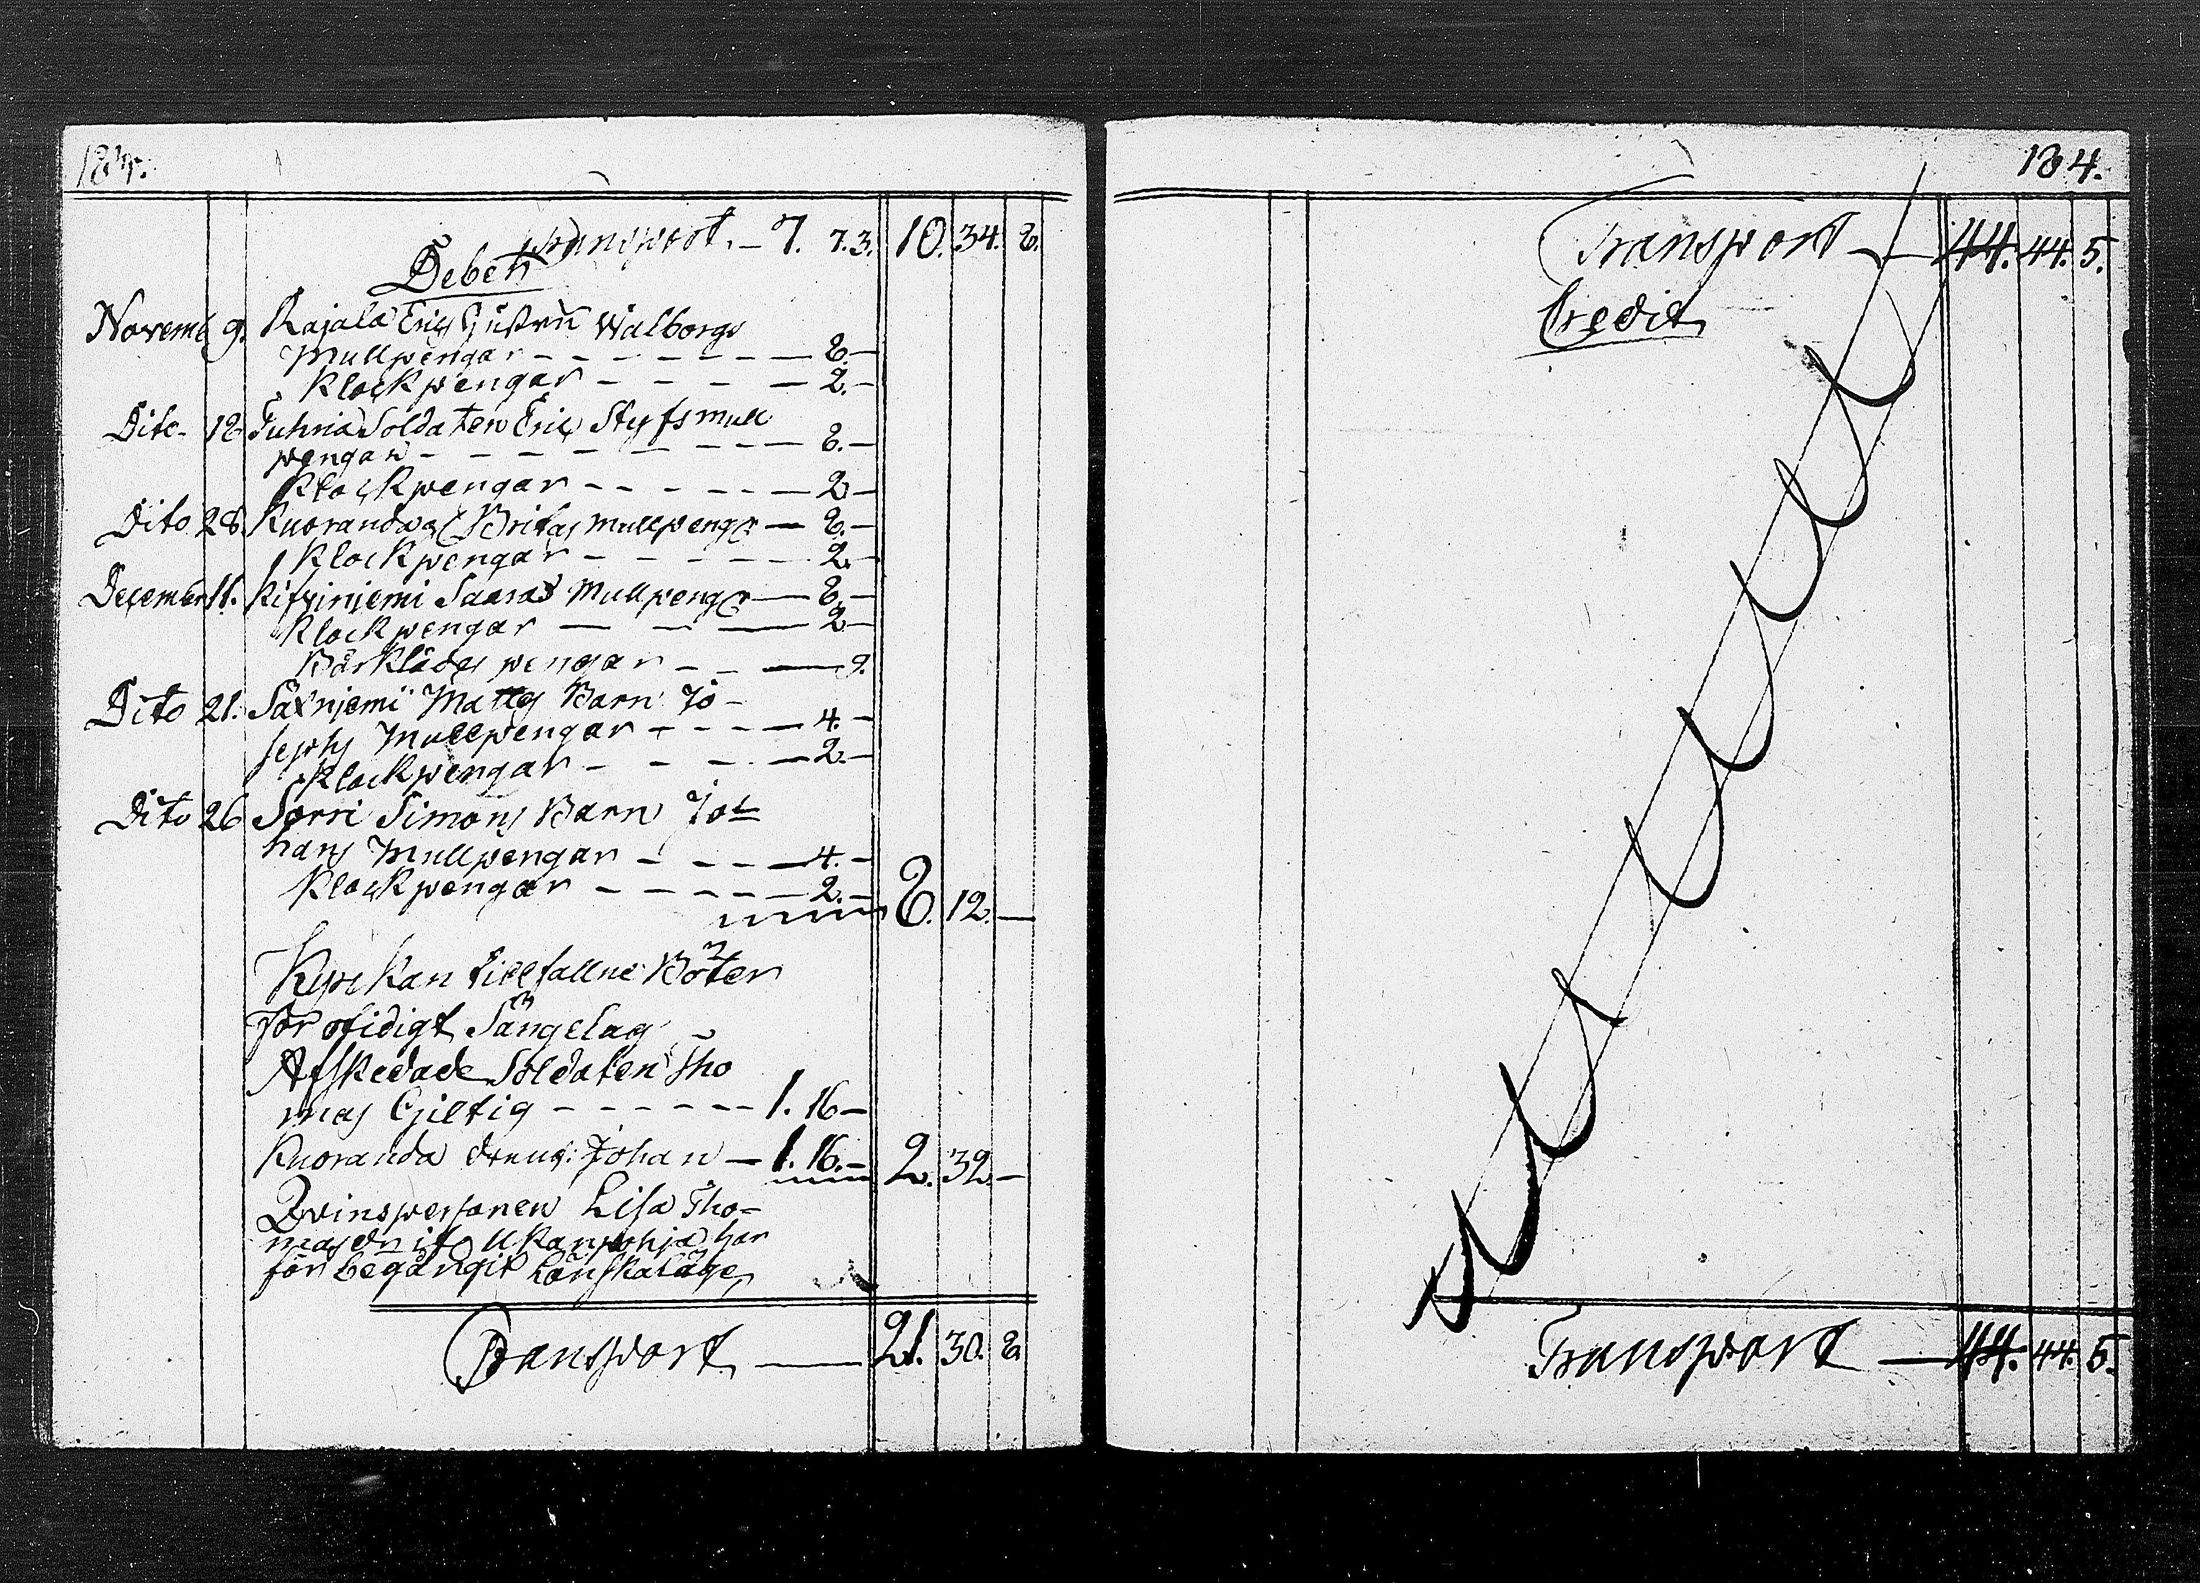 184.
Transport. — 7. 7. 3. 10. 34. 8.
Debet
Novemb 9. Rajala Erics Hustru Walborgs
Mullpengar — — — — — — 8. —
Klockpengar — — — — 2. —
Dito - 18 Juhria Soldaten Eric Styfs mull
pengar — — — — — — 8. —
Klockpengar — — — — — 2 —
Dito 28. Kuoranda Britas mullpengr — 8. —
Klockpengar — — — — — 2. —
December 11. Saaras Mullpengr — 8. —
Klockpengar — — — 2 —
Bårklädes pengar — — — 9.
Dito 21. Säxnjemi Matts Barn Jo-
sephs Mullpengar — — — 4. —
Klockpengar — — — — 2. —
Dito 26 Sorri Simons Barn Jo=
hans Mullpengar — — — 4. —
Klockpengar — — — — — 2. — 8. 12. —
Kyrkan tillfallne Böter
för otidigt Sängelag
Afskedade Soldaten Tho
mas Giltig — — — — — 1. 16 —
Kuoranda dräng: Johan — 1. 16. — 2. 32. —
Qvinspersonen Lisa Tho=
masdr if har
för begångit Lönskaläge
Transport — 21. 30. 8.
184.
Transport — 44. 44. 5.
Credit
Transport — 44. 44. 5.